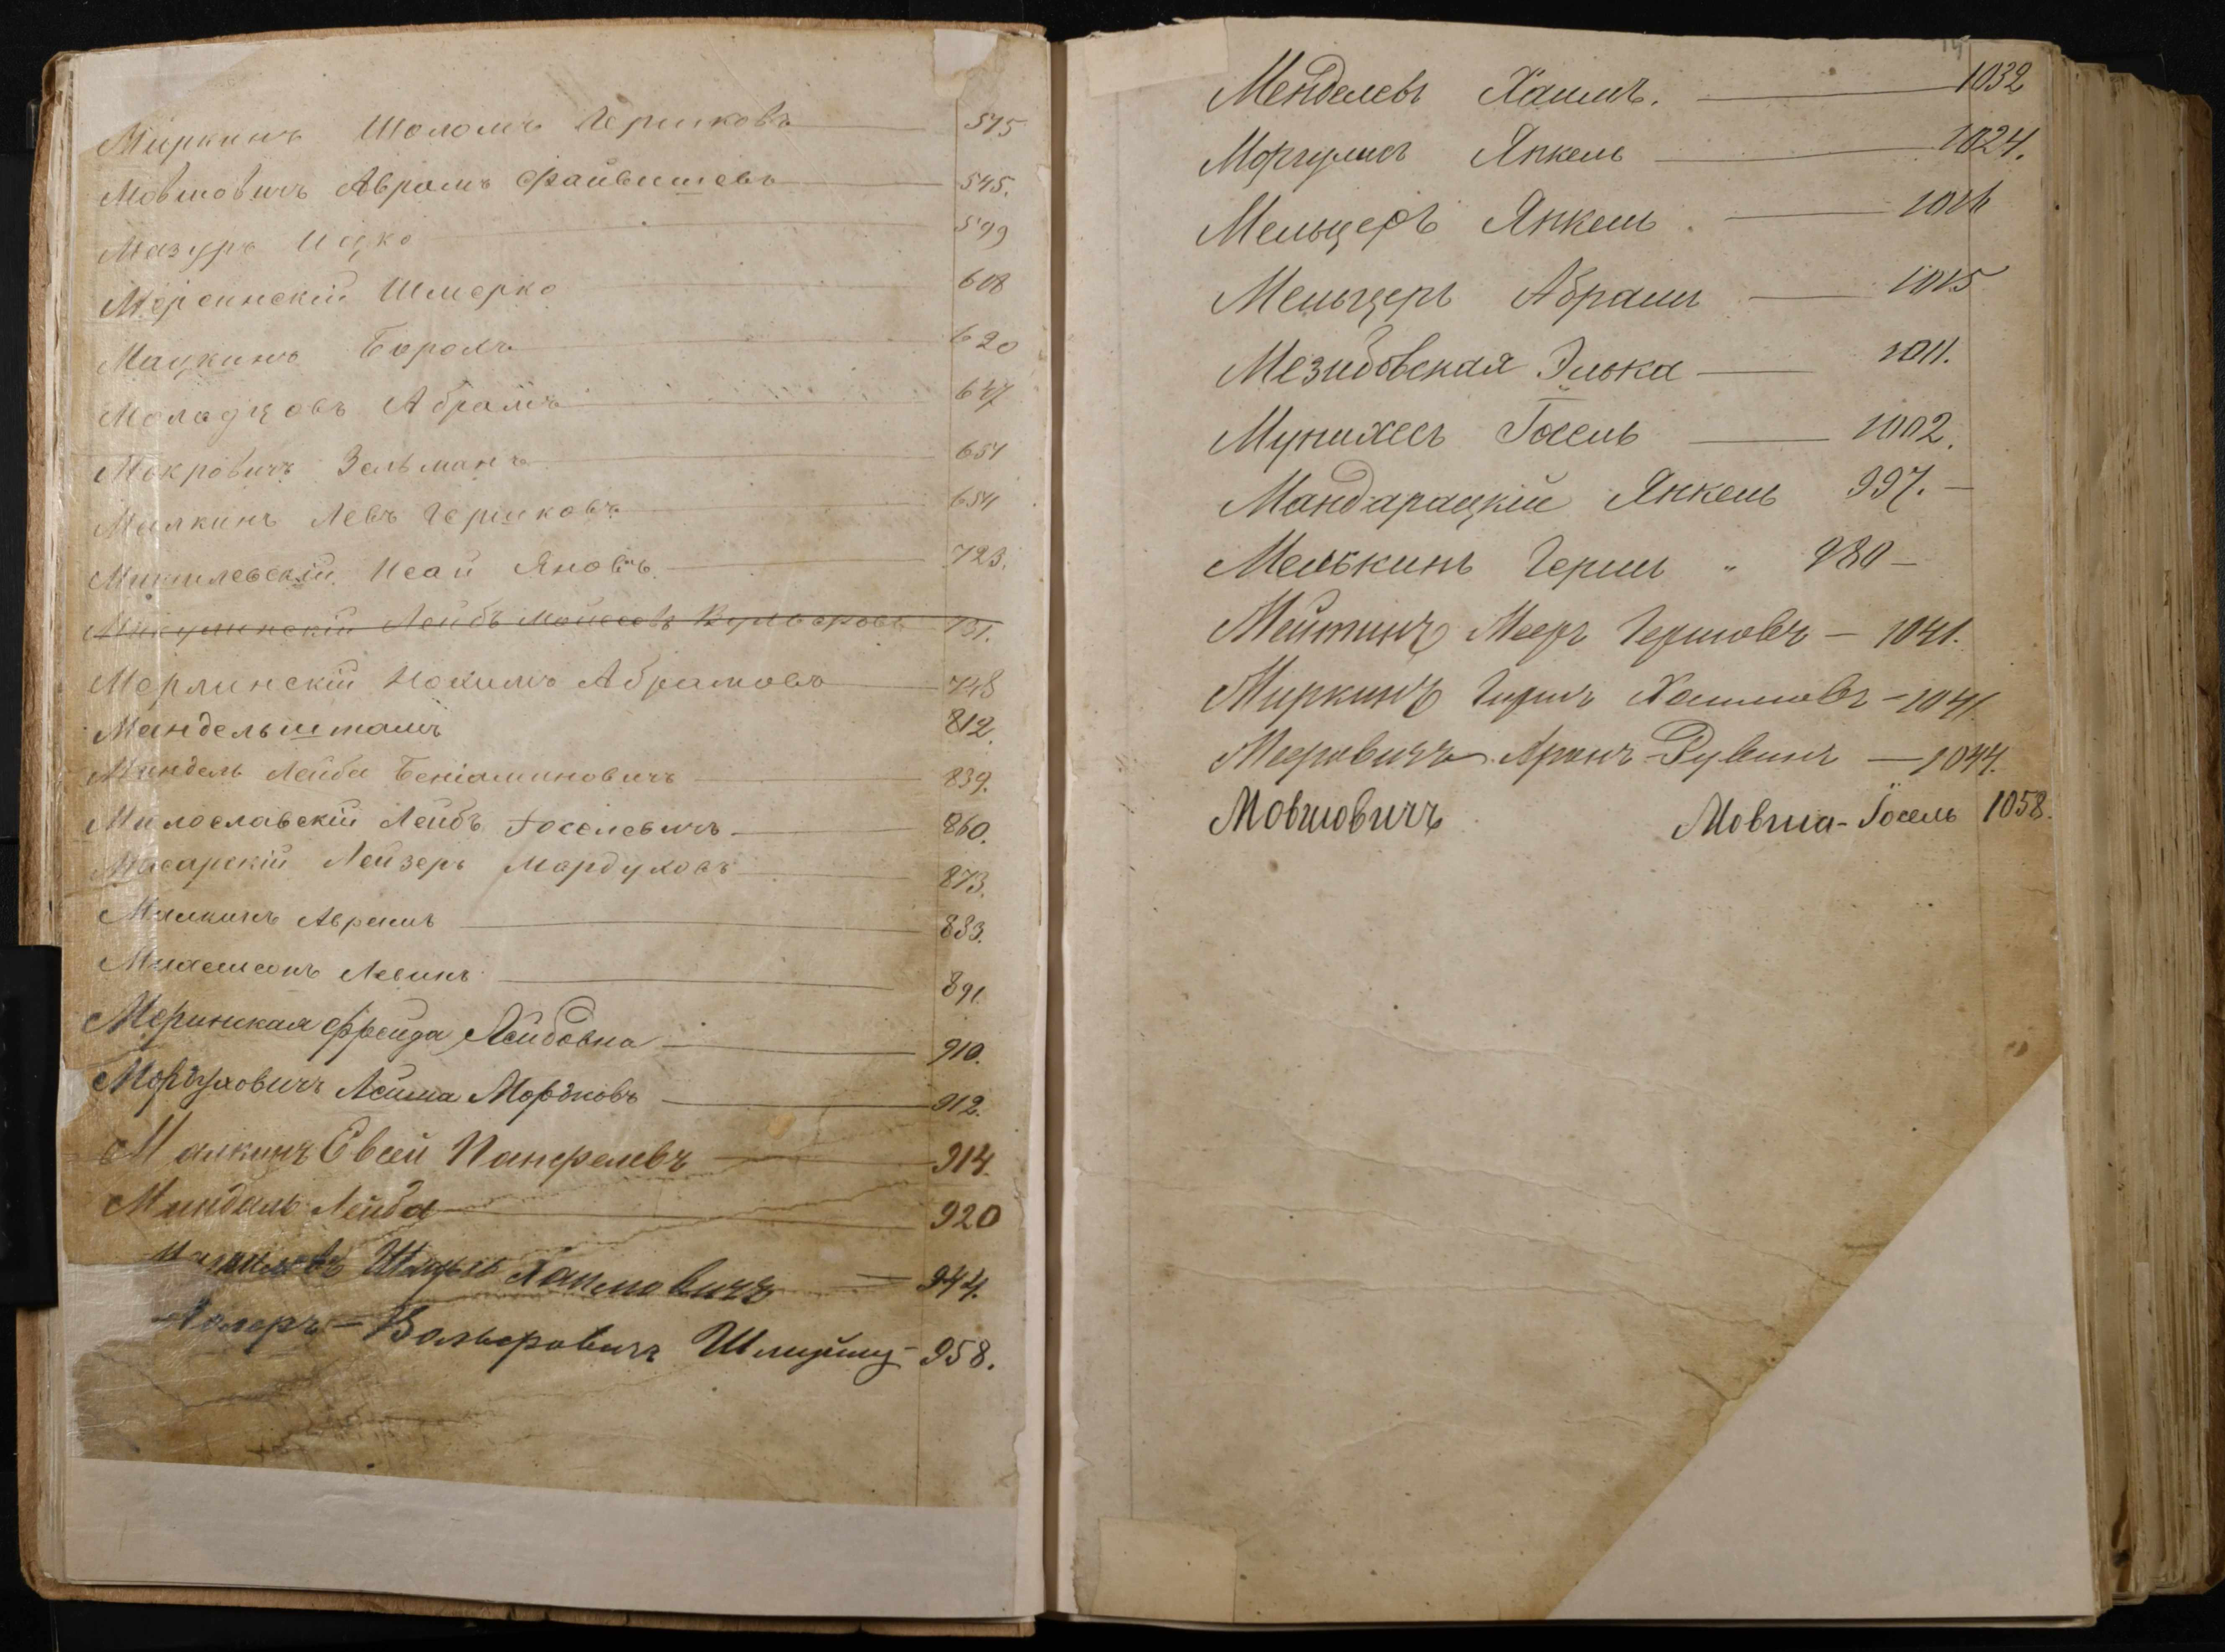 Миркинъ Шоломъ Гершковъ 575
Мовшовичъ Аврамъ Файвишевъ 545.
Мазуръ Ицко 599
Мерсинскій Шмерко 608
Мацкинъ Борохъ 620
Молодцовъ Абрамъ 647
Мокровичъ Зельманъ 651
Малкинъ Левъ Гершковъ 654
Исай Яновъ 723.
Микулинскій Лейбъ Мойсеовъ 731.
Мерлинскій Нохимъ Абрамовъ 748
Мандельштамъ 812.
Миндель Лейба Беніаминовичъ 839.
Милославскій Лейбъ Іоселевичъ 860.
Масарскій Лейзеръ Мордуховъ 873.
Малкинъ Аврамъ 883.
Михельсонъ Левинъ 891.
Меринская Фрейда Лейбовна 910.
Мордуховичъ 912.
Малкинъ Евсей 914.
Миндаль Лейба 920
Хаимовичъ 944.
Вольфовичъ 958.
Менделевъ Хаимъ. 1032
Моргулисъ Янкель 1024.
Мельцеръ Янкель. 1016
Мельцеръ Абрамъ 1015
Мезибовская Элька 1011.
Мунихесъ Іосель 1002.
Мандарацкій Янкель 997. —
Мелькинъ Герш „ 980 —
Мейтинъ Мееръ Гершовъ — 1041.
Миркинъ Гиршъ Хаимовъ — 1041.
Мееровичъ Аронъ-Рувинъ — 1044.
Мовшовичъ Мовша-Іосель 1058.